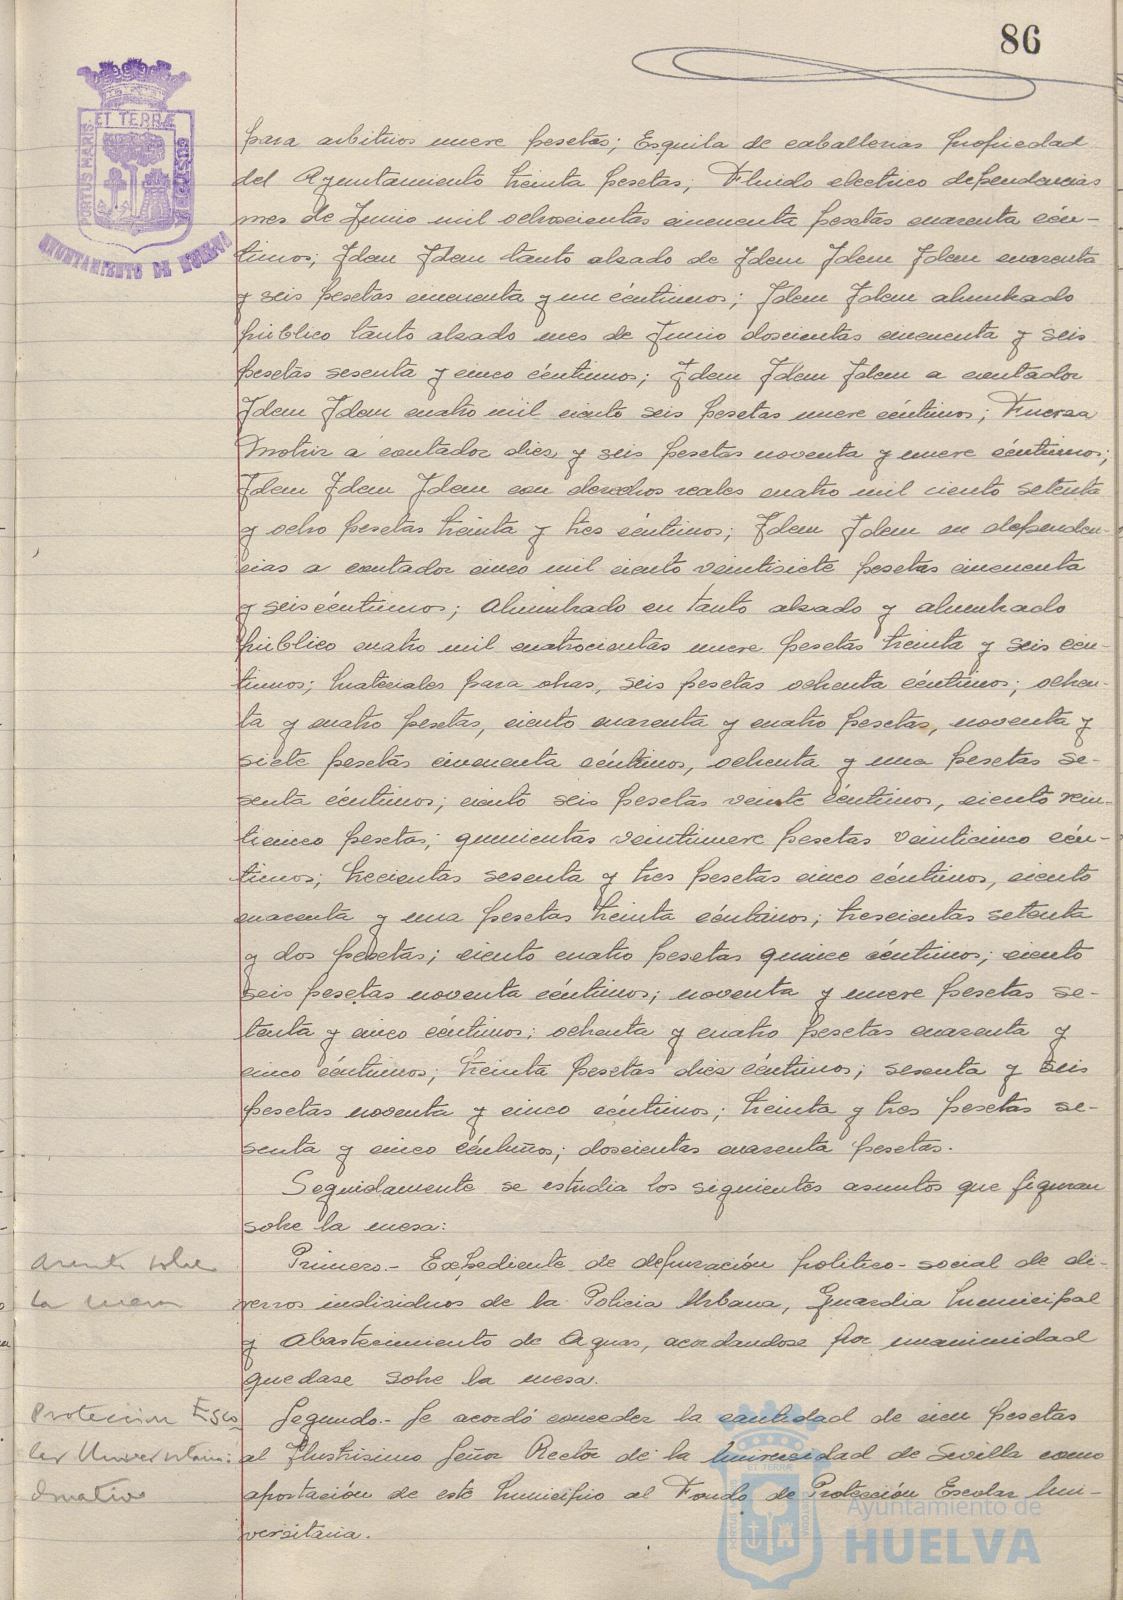 86
PORTUS MARIS ET TERRÆ CUSTODIA
AYUNTAMIENTO DE HUELVA
para arbitrios nueve pesetas; Esquila de caballerias propiedad
del Ayuntamiento treinta pesetas; Fluido electrico dependencias
mes de Junio mil ochocientas cincuenta pesetas cuarenta cén-
timos; Idem Idem tanto alzado de Idem Idem Idem cuarenta
y seis pesetas cincuenta y un céntimos; Idem Idem alumbrado
público tanto alzado mes de Junio doscientas cincuenta y seis
pesetas sesenta y cinco céntimos; Idem Idem Idem a contador
Idem Idem cuatro mil ciento seis pesetas nueve céntimos; Fuerza
Motriz a contador diez y seis pesetas noventa y nueve céntimos;
Idem Idem Idem con derechos reales cuatro mil ciento setenta
y ocho pesetas treinta y tres céntimos; Idem Idem en dependen-
cias a contador cinco mil ciento veintisiete pesetas cincuenta
y seis céntimos; Alumbrado en tanto alzado y alumbrado
público cuatro mil cuatrocientas nueve pesetas treinta y seis cén-
timos; Materiales para obras, seis pesetas ochenta céntimos; ochen-
ta y cuatro pesetas, ciento cuarenta y cuatro pesetas, noventa y
siete pesetas cincuenta céntimos, ochenta y una pesetas se-
senta céntimos; ciento seis pesetas veinte céntimos, ciento vein-
ticinco pesetas; quinientas veintinueve pesetas veinticinco cén-
timos; trecientas sesenta y tres pesetas cinco céntimos, ciento
cuarenta y una pesetas treinta céntimos; trescientas setenta
y dos pesetas; ciento cuatro pesetas quince céntimos; ciento
seis pesetas noventa céntimos; noventa y nueve pesetas se-
tenta y cinco céntimos; ochenta y cuatro pesetas cuarenta y
cinco céntimos; treinta pesetas diez céntimos; sesenta y seis
pesetas noventa y cinco céntimos; treinta y tres pesetas se-
senta y cinco céntimos; doscientas cuarenta pesetas.
Seguidamente se estudia los siguientes asuntos que figuran
sobre la mesa:
Asunto sobre
la mesa
Primero.- Expediente de depuración politico-social de di-
versos individuos de la Policia Urbana, Guardia Municipal
y Abastecimiento de Aguas, acordandose por unanimidad
quedase sobre la mesa.
Protección Esco
lar Universitaria:
Donativo
Segundo.- Se acordó conceder la cantidad de cien pesetas
al Ilustrisimo Señor Rector de la Universidad de Sevilla como
aportación de este Municipio al Fondo de Protección Escolar Uni-
versitaria.
Ayuntamiento de
HUELVA